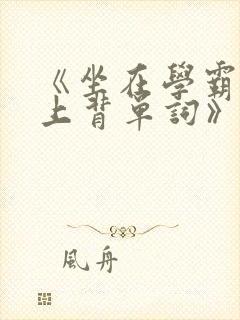 《坐在學霸
上背單詞》
風舟